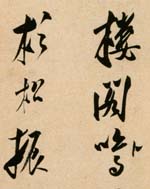 樓閣鳴
杉松振